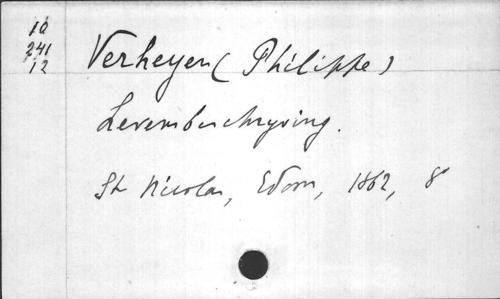 10
241
12
Verheyen (Philippe)
Levensbeschryving.
St Nicolas, Edom, 1862, 8°